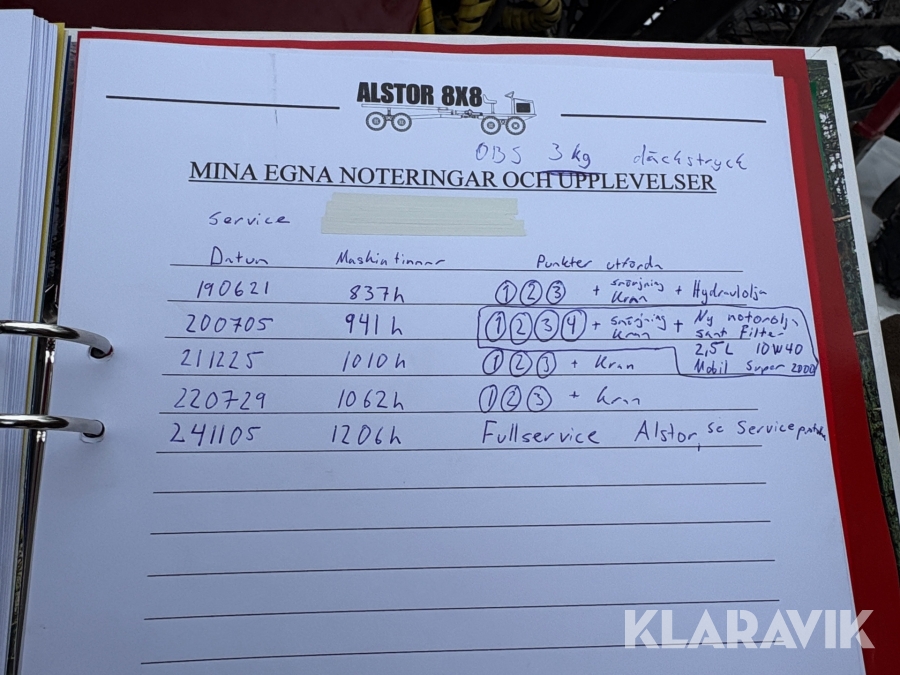 ALSTOR 8X8
OBS 3 kg däckstryck
MINA EGNA NOTERINGAR OCH UPPLEVELSER
Service
Datum Maskintimmar Punkter utförda
190621 837h 1 2 3 + smörjning kran + Hydraulolja
200705 941h 1 2 3 4 + smörjning kran + Ny motorolja samt filter
2,5L 10W40
211225 1010h 1 2 3 + kran
Mobil Super 2000
220729 1062h 1 2 3 + kran
241105 1206h Fullservice Alstor, se Service
KLARAVIK